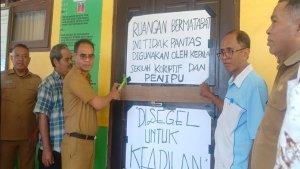 RUANGAN BERMARTABAT
INI TIDAK PANTAS
DIGUNAKAN OLEH KEPALA
SEKLAH KORUPTIF DAN
PENIPU
DISEGEL
UNTUK
KEADILAN